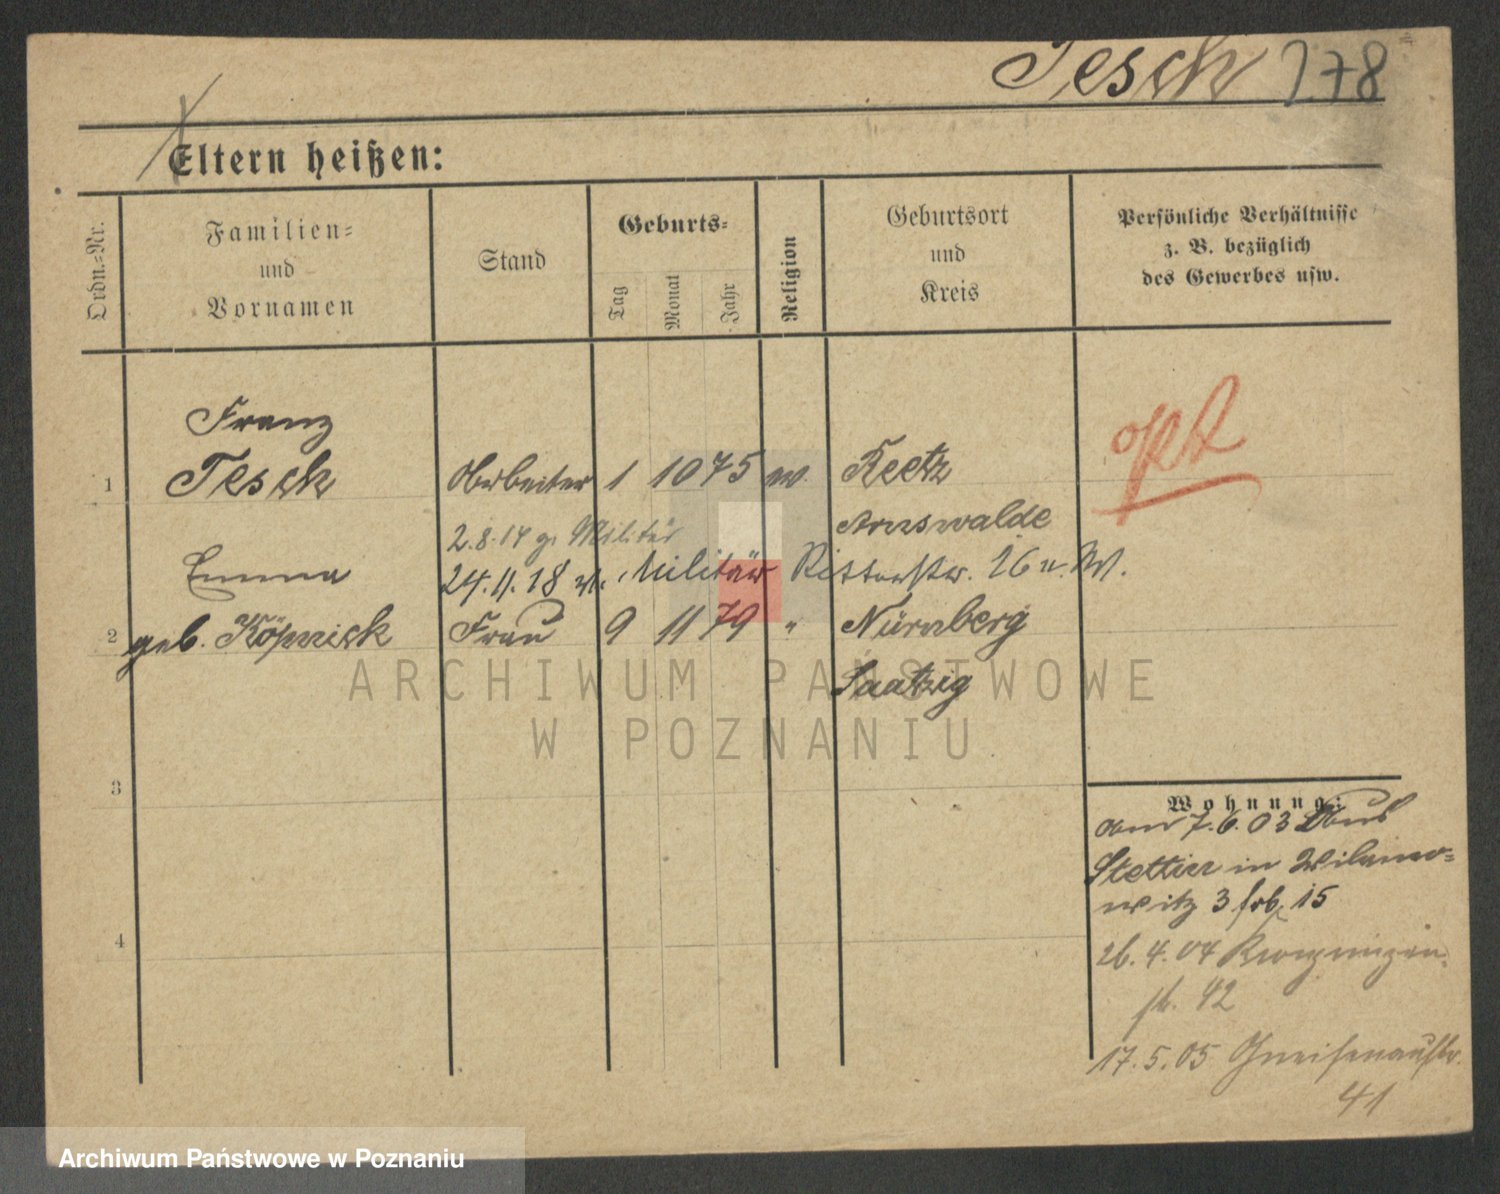 Tesch 178
Eltern heißen:
Ordn.-Nr.
Familien-
und
Vornamen
Stand
Geburts-
Tag
Monat
Jahr
Religion
Geburtsort
und
Kreis
Persönliche Verhältnisse
z. B. bezüglich
des Gewerbes usw.
Franz
1 Tesch Arbeiter 1 10 75 ev. Reetz
opt
Arnswalde
2.8.14 z. Militär
Emma
24.11.18 v. Militär Ritterstr. 16 u. W.
2 geb. Köpnick Frau 9 11 79 " Nürnberg
Saatzig
ARCHIWUM PAŃSTWOWE
W POZNANIU
3
Wohnung:
am 7.6.03 aus
Stettin in Wilamo-
witz 3 15
4
26.4.04 Kronprinzen-
str. 42
17.5.05 Gneisenaustr.
41
Archiwum Państwowe w Poznaniu